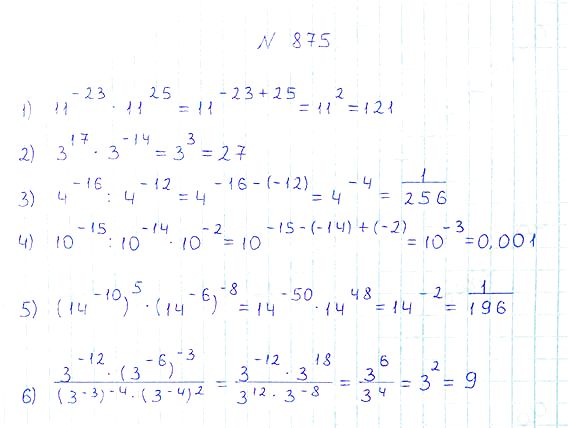 N 875
1) 11^{-23} · 11^{25} = 11^{-23+25} = 11^{2} = 121
2) 3^{17} · 3^{-14} = 3^{3} = 27
3) 4^{-16} : 4^{-12} = 4^{-16-(-12)} = 4^{-4} = \frac{1}{256}
4) 10^{-15} : 10^{-14} · 10^{-2} = 10^{-15-(-14)+(-2)} = 10^{-3} = 0,001
5) (14^{-10})^{5} · (14^{-6})^{-8} = 14^{-50} · 14^{48} = 14^{-2} = \frac{1}{196}
6) \frac{3^{-12} · (3^{-6})^{-3}}{(3^{-3})^{-4} · (3^{-4})^{2}} = \frac{3^{-12} · 3^{18}}{3^{12} · 3^{-8}} = \frac{3^{6}}{3^{4}} = 3^{2} = 9